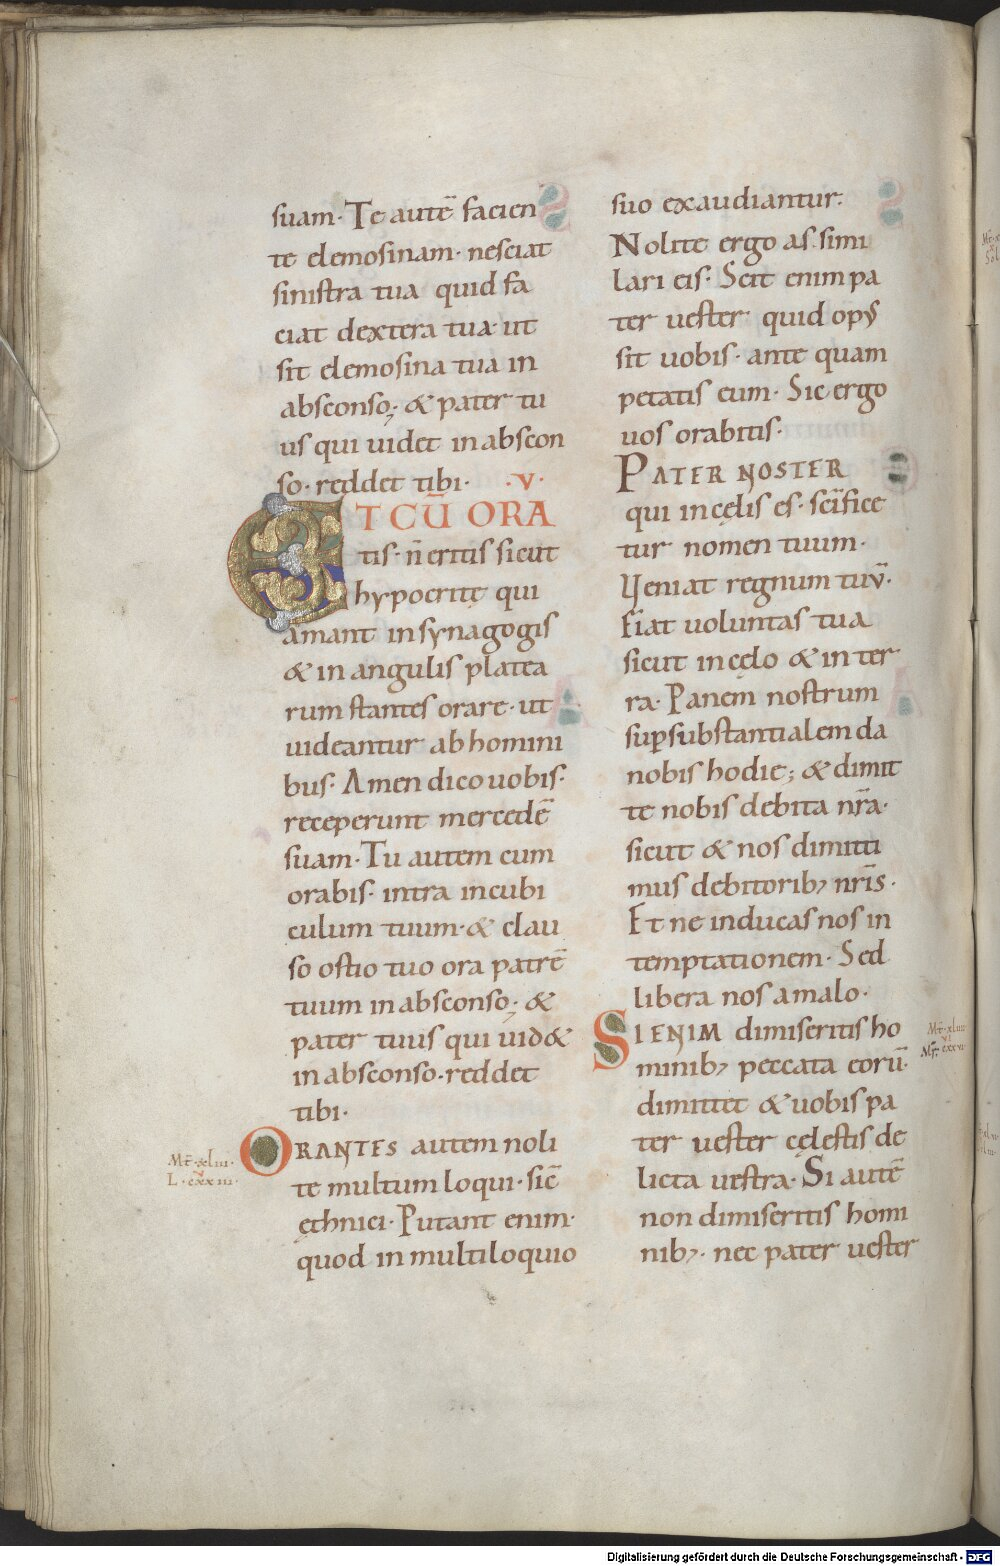 suam· Te autē facien
te elemosinam· nesciat
sinistra tua quid fa
ciat dextera tua· ut
sit elemosina tua in
absconso; & pater tu
us qui uidet in abscon
so· reddet tibi· ·V·
ET CŪ ORA
tis· n̄ eritis sicut
hypocritę qui
amant in synagogis
& in angulis platea
rum stantes orare· ut
uideantur ab homini
bus· Amen dico uobis·
receperunt mercedē
suam· Tu autem cum
orabis· intra in cubi
culum tuum· & clau
so ostio tuo ora patrē
tuum in absconso; &
pater tuus qui uid&
in absconso· reddet
tibi·
ORANTES autem noli
te multum loqui· sic̄
ęthnici· Putant enim·
quod in multiloquio
suo exaudiantur·
Nolite ergo as simi
lari eis· Scit enim pa
ter uester quid opus
sit uobis· ante quam
petatis eum· Sic ergo
uos orabitis·
PATER NOSTER
qui in cęlis es· sc̄ifice
tur nomen tuum·
Veniat regnum tuū·
Fiat uoluntas tua
sicut in cęlo & in ter
ra· Panem nostrum
suꝑsubstantialem da
nobis hodie; & dimit
te nobis debita nr̄a·
sicut & nos dimitti
mus debitorib; nr̄is·
Et ne inducas nos in
temptationem· Sed
libera nos a malo·
SI ENIM dimiseritis ho
minib; peccata eorū·
dimittet & uobis pa
ter uester cęlestis de
licta uestra· Si autē
non dimiseritis homi
nib;· nec pater uester
Mt̄· xliii·
v
L· cxxiii·
Digitalisierung gefördert durch die Deutsche Forschungsgemeinschaft - DFG